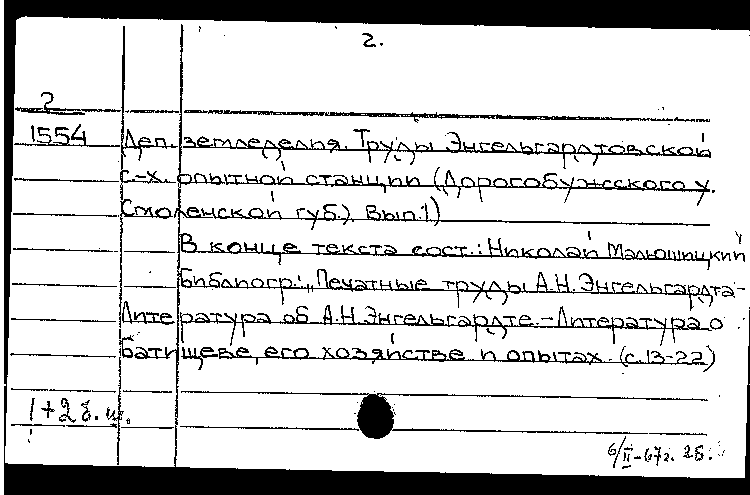 2.
2
1554 Деп. земледелия. Труды Энгельгардтовской
с-х. опытной станции (Дорогобужсского у.
Смоленской губ.). Вып.1)
В конце текста сост.: Николай Малюшицкий
библиогр.: „Печатные труды А.Н. Энгельгардта-
Литература об А.Н. Энгельгардте.-Литература о
батищеве, его хозяйстве и опытах. (с.13-22)
1+2
6/II-67г.